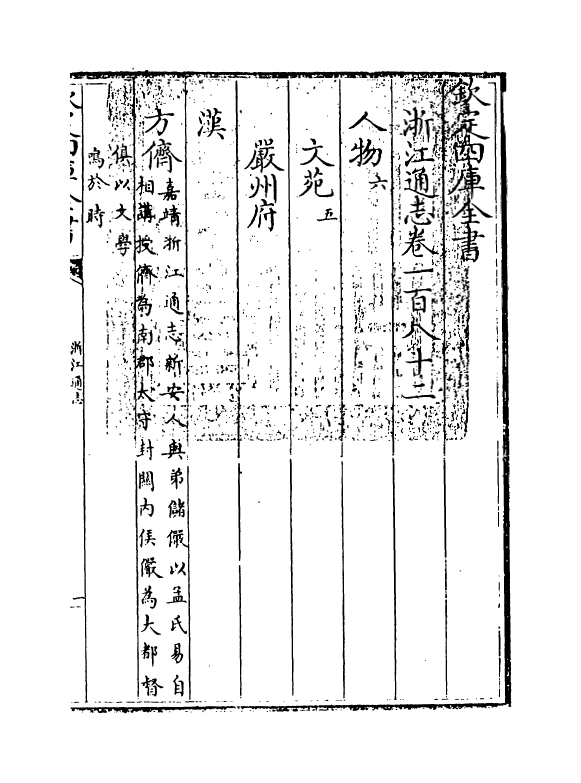 欽定四庫全書
浙江通志卷一百八十二
人物六
文苑五
嚴州府
漢
方儕嘉靖浙江通志新安人與弟儲儼以孟氏易自
相講授儕為南郡太守封關內侯儼為大都督
俱以文學
鳴於時
浙江通志
一